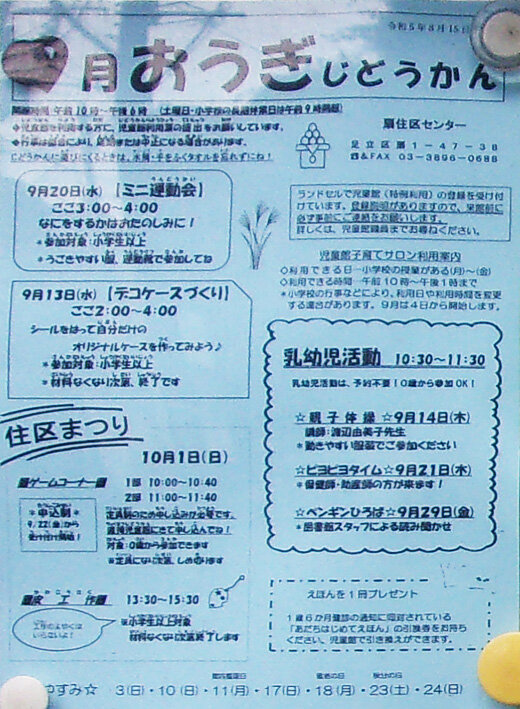 令和5年8月15日
9月 おうぎじどうかん
開館時間 午前10時~午後6時 (土曜日・小学校の長期休業日は午前9時開館)
◇児童館を利用する方に、児童館利用票の提出をお願いしています。
◇行事は都合により、延期または中止になる場合があります。
じどうかんに遊びにくるときは、水筒・手をふくタオルを忘れずにね!
扇住区センター
足立区扇1-47-38
☎&FAX 03-3896-0686
9月20日(水) 【ミニ運動会】
ごご3:00~4:00
なにをするかはおたのしみに!
*参加対象:小学生以上
*うごきやすい服、運動靴で参加してね
ランドセルで児童館(特例利用)の登録を受け付
けています。登録説明がありますので、来館前に
必ず事前にご連絡をお願いします。
詳しくは、児童館職員までお尋ねください。
児童館子育てサロン利用案内
◇利用できる日…小学校の授業がある(月)~(金)
◇利用できる時間…午前10時~午後1時まで
*小学校の行事などにより、利用日や利用時間を変更
する場合があります。9月は4日から開始します。
9月13日(水) 【デコケースづくり】
ごご2:00~4:00
シールをはって自分だけの
オリジナルケースを作ってみよう♪
*参加対象:小学生以上
*材料なくなり次第、終了です
乳幼児活動 10:30~11:30
乳幼児活動は、予約不要!0歳から参加OK!
☆親子体操☆9月14日(木)
講師:渡辺由美子先生
*動きやすい服装でご参加ください
☆ピヨピヨタイム☆9月21日(木)
*保健師・助産師の方が来ます!
☆ペンギンひろば☆9月29日(金)
*図書館スタッフによる読み聞かせ
住区まつり
10月1日(日)
ゲームコーナー
1部 10:00~10:40
2部 11:00~11:40
*申込制*
9/22(金)から
受け付け開始!
定員制のため申し込みが必要です。
直接児童館にきて申し込んでね!
対象:0歳から参加できます
*定員になり次第、しめ切ります
工作 13:30~15:30
工作のよやくは
いらないよ!
※小学生以上対象
材料なくなり次第終了します
えほんを1冊プレゼント
1歳6か月健診の通知に同封されている
「あだちはじめてえほん」の引換券をお持ち
ください。児童館で引き換えができます。
やすみ☆ 3(日)・10(日)・11(月)・17(日)・18(月)・23(土)・24(日)
館内整理日 敬老の日 秋分の日